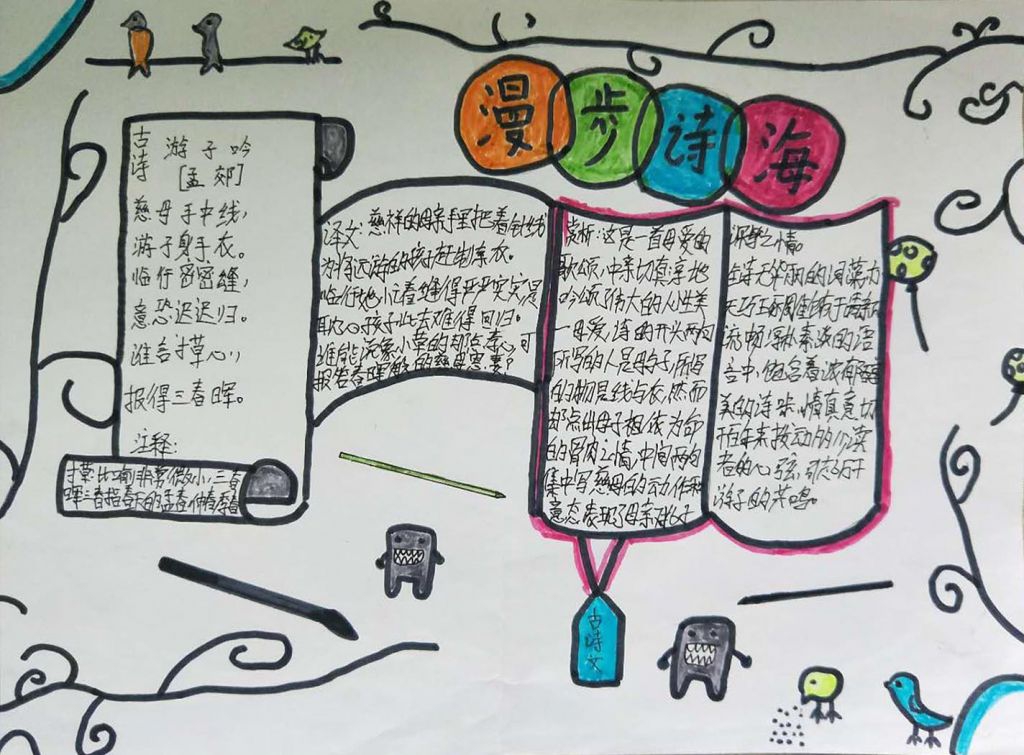 漫步诗海
古诗
游子吟
[孟郊]
慈母手中线，
游子身手衣。
临行密密缝，
意恐迟迟归。
谁言寸草心，
报得三春晖。
注释：
寸草：比喻非常微小，三春
译文：慈祥的母亲手里把着针线
为将远游的孩子赶制新衣。
临行她忙着缝得严严实实，是
耽心孩子此去难得回归。
谁能说像小草的那点孝心，可
报答春晖般的慈母恩惠？
赏析：这是一首母爱的
歌颂，中亲切真淳地
吟颂了伟大的人性美
—母爱，诗的开头两句
所写的人是母子，所写
的物是线与衣，然而
却点出母子相依为命
的骨肉之情，中间两句
集中写慈母的动作和
意态表现了母亲对儿子
深挚之情。
流畅，淳朴素淡的语
言中，饱含着浓郁醇
美的诗味，情真意切
千百年来拨动多少读
者的心弦，引起万千
游子的共鸣。
古诗文